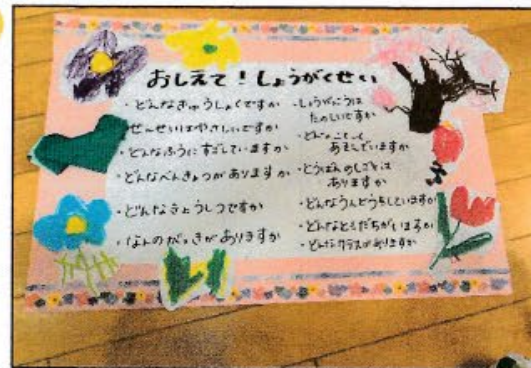 おしえて!しょうがくせい
・どんなきゅうしょくですか
・せんせいはやさしいですか
・どんなふうにすごしていますか
・どんなべんきょうがありますか
・どんなきょうしつですか
・なんのがっきがありますか
・しょうがっこうは
たのしいですか
・どんなことをして
あそんでいますか
・とうばんのしごとは
ありますか
・どんなうんどうをしていますか
・どんなともだちがいますか
・どんなクラスがありますか